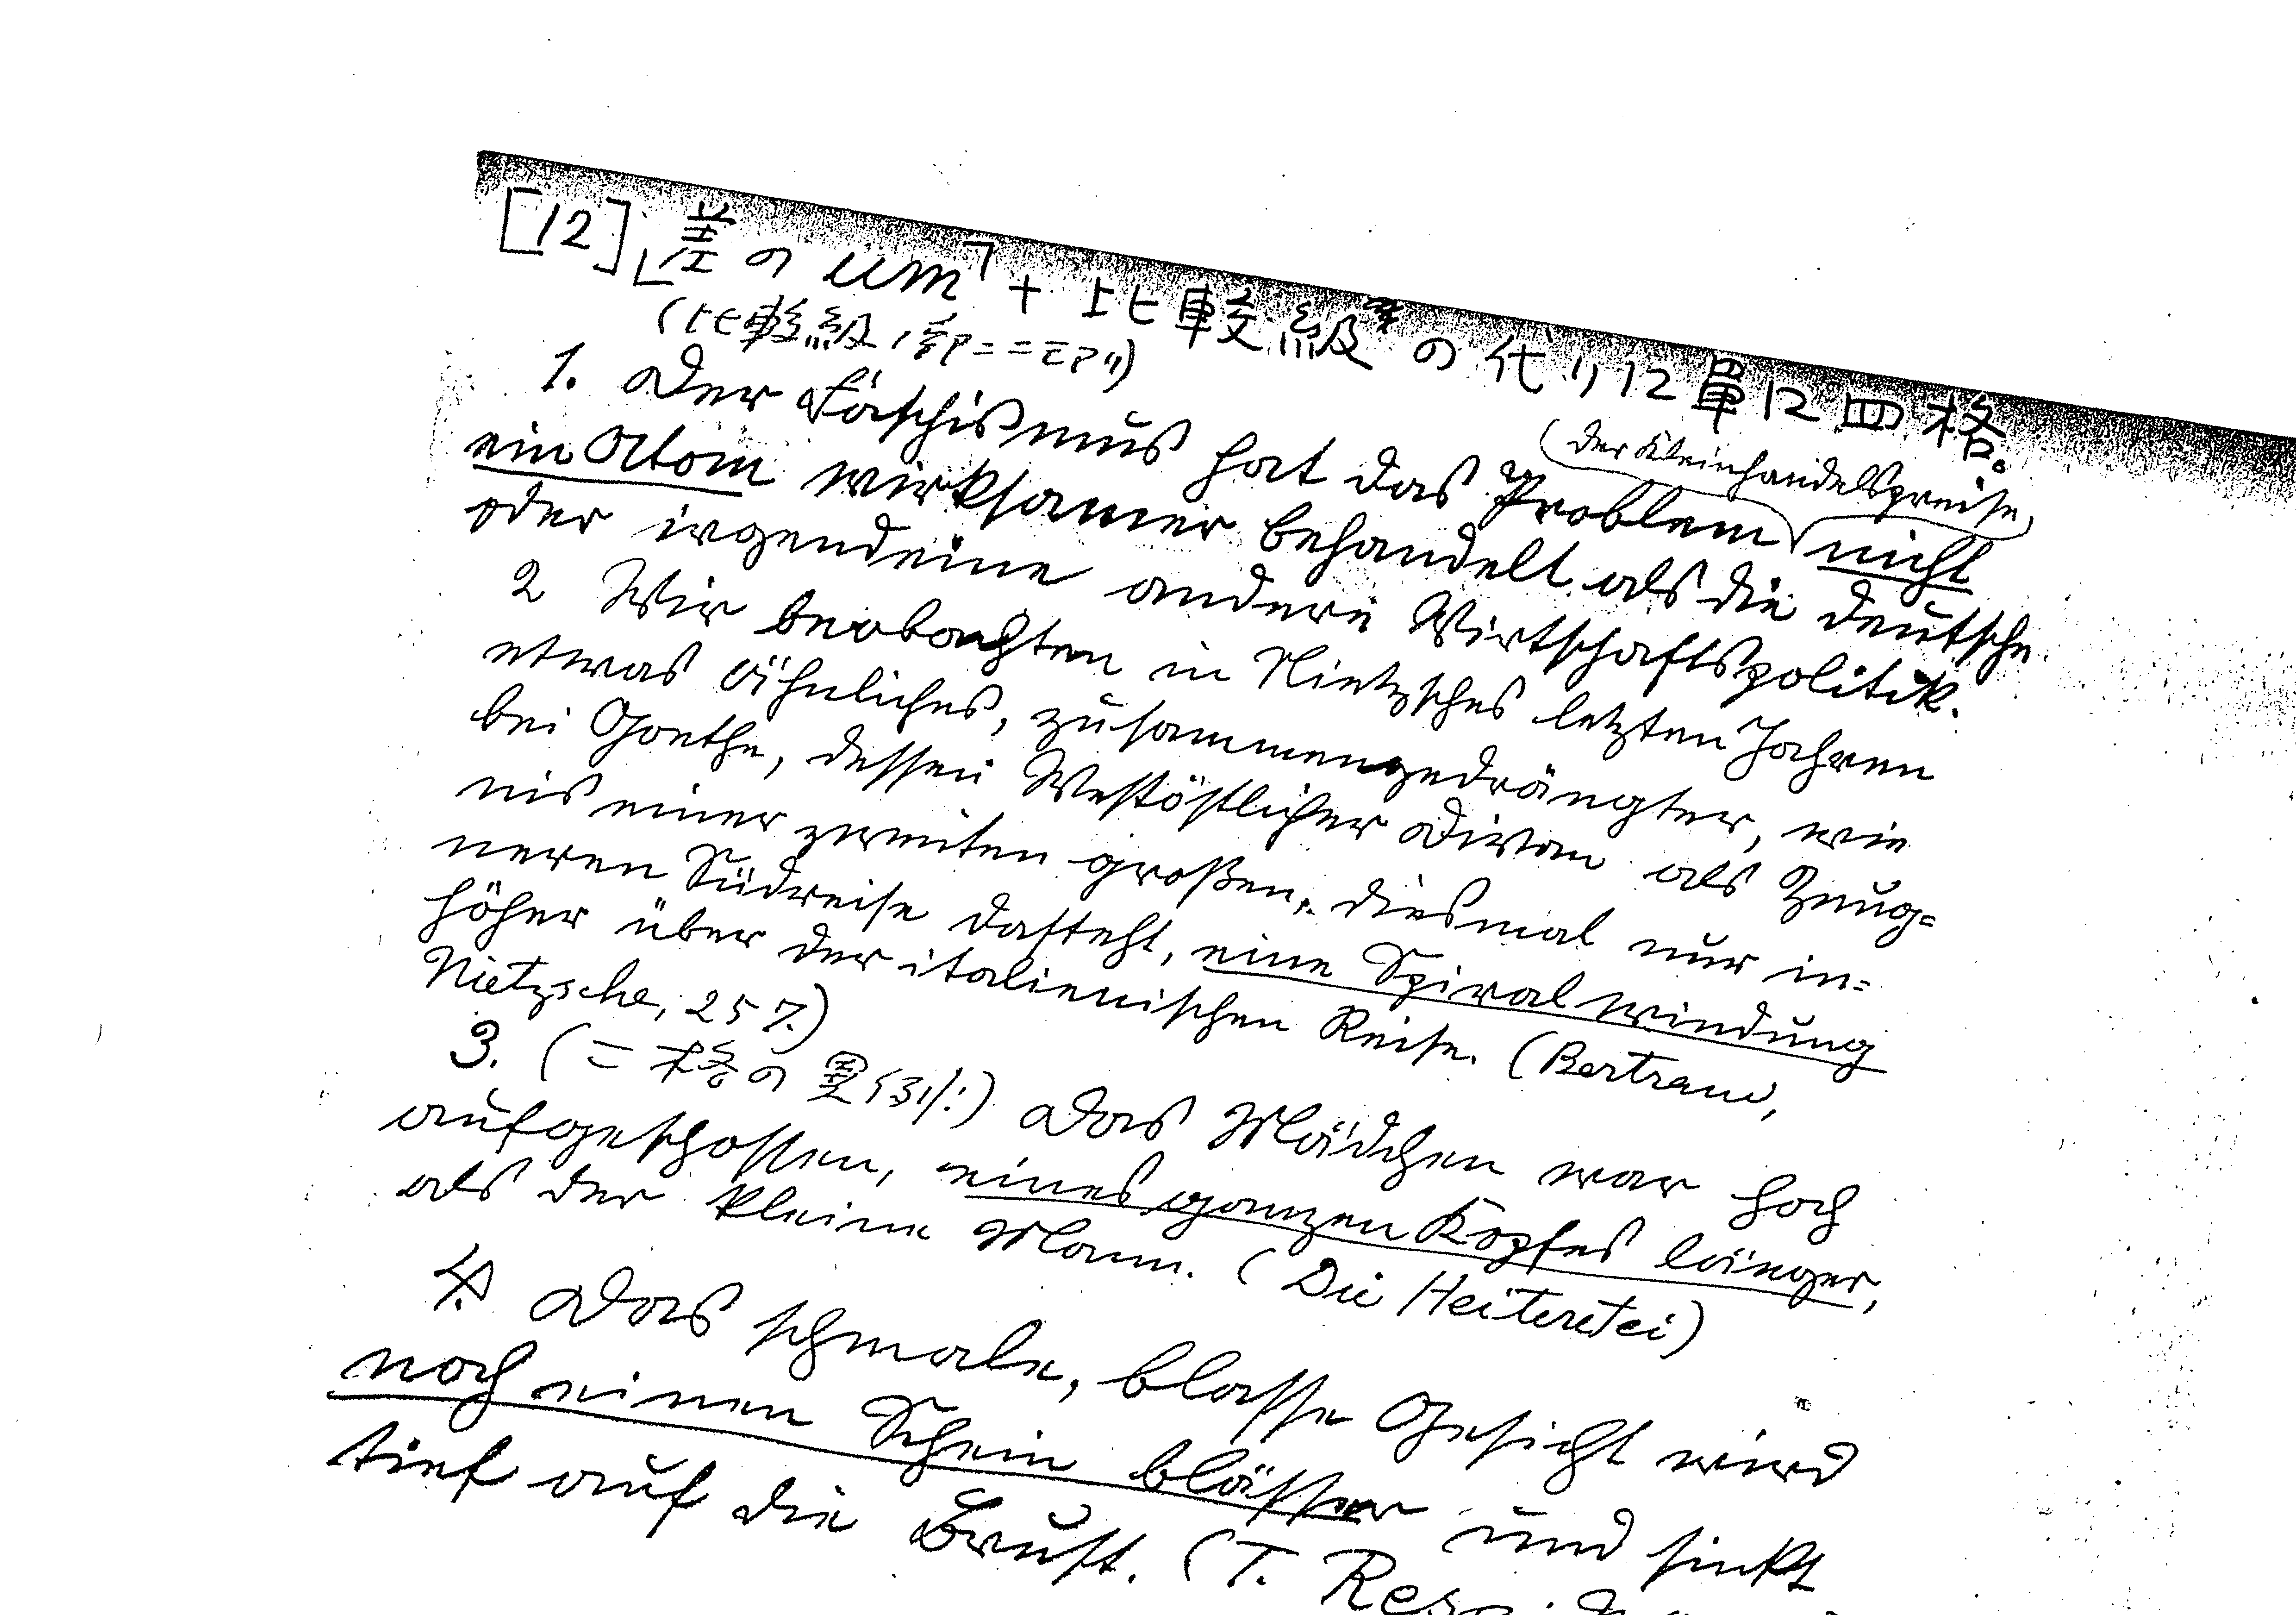 [12]「差の um」+ 比較級の代りに単に四格。
(比較級ノ部ニモアリ)
1. Der Faschismus hat das Problem (der Kleinhandelspreise) nicht
ein Atom wirksamer behandelt als die deutsche
oder irgendeine andere Wirtschaftspolitik.
2 Wir beobachten in Nietzsches letzten Jahren
etwas Ähnliches, zusammengedrängter, wie
bei Goethe, dessen Westöstlicher Divan als Zeug=
nis einer zweiten großen, diesmal nur in=
neren Südreise dasteht, eine Spiralwindung
höher über der italienischen Reise. (Bertram,
Nietzsche, 257.)
3. (二格の異例!) Das Mädchen war hoch
aufgeschossen, eines ganzen Kopfes länger,
als der kleine Mann. (Die Heiteretei)
4. Das schmale, blasse Gesicht wird
noch einen Schein blässer und sinkt
tief auf die Brust. (T.